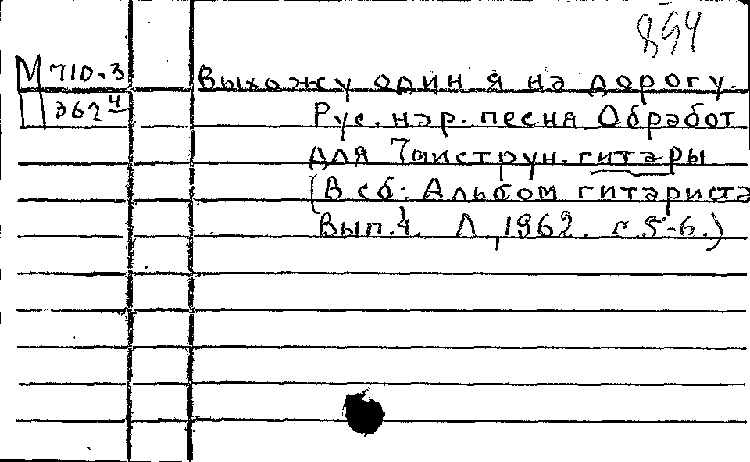 854
М 710.3
П 362 4
Выхожу один я на дорогу.
Рус. нар. песня Обработ
для 7миструн. гитары
(В сб: Альбом гитариста
Вып.4. Л, 1962. с 5-6.)